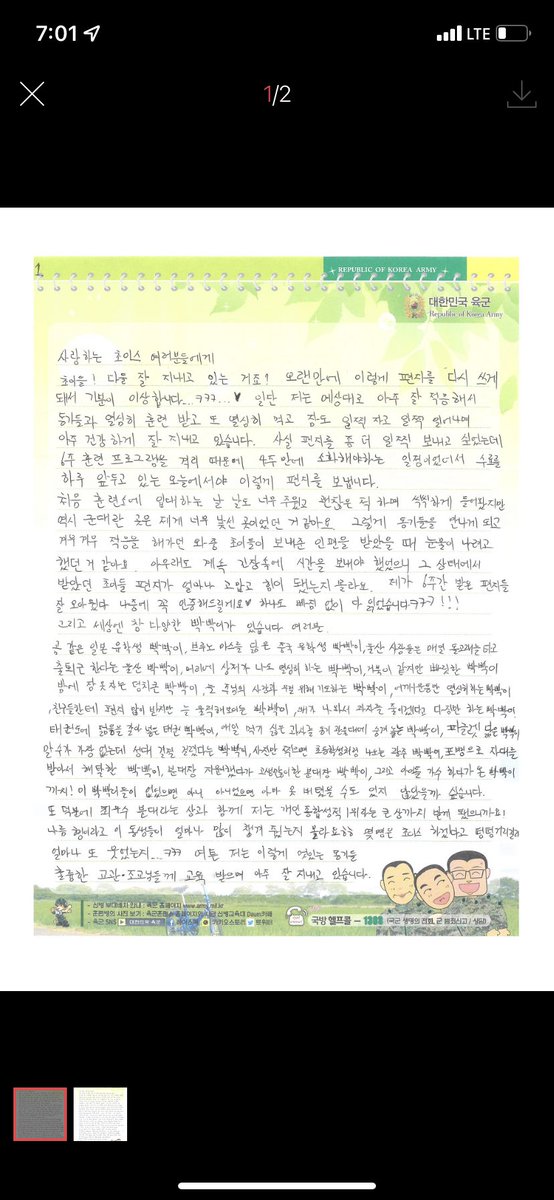 7:01
LTE
1/2
1
REPUBLIC OF KOREA ARMY
대한민국 육군
Republic of Korea Army
사랑하는 초이스 여러분들에게
초이들! 다들 잘 지내고 있는 거죠? 오랜만에 이렇게 편지를 다시 쓰게
돼서 기분이 이상합니다...ㅋㅋㅋ...♥ 일단 저는 예상대로 아주 잘 적응해서
동기들과 열심히 훈련 받고 또 열심히 먹고 잠도 일찍 자고 일찍 일어나며
아주 건강하게 잘 지내고 있습니다. 사실 편지를 좀 더 일찍 보내고 싶었는데
6주 훈련 프로그램을 격리 때문에 4주만에 소화해야하는 일정이었어서 수료를
하루 앞두고 있는 오늘에서야 이렇게 편지를 보냅니다.
처음 훈련소에 입대하는 날 날도 너무 추웠고 괜찮은 척 하며 씩씩하게 들어갔지만
역시 군대란 곳은 제게 너무 낯선 곳이었던 거 같아요. 그렇게 동기들을 만나게 되고
겨우겨우 적응을 해가던 와중 초이들이 보내준 인편을 받았을 때 눈물이 나려고
했던 거 같아요. 아무래도 계속 긴장속에 시간을 보내야 했었으니 그 상태에서
받았던 초이들 편지가 얼마나 고맙고 힘이 됐는지 몰라요. 제가 6주간 받은 편지들
잘 모아뒀다 나중에 꼭 인증해드릴게요♥ 하나도 빠짐 없이 다 읽었습니다ㅋㅋㅋ!!!
그리고 세상엔 참 다양한 빡빡이가 있습니다 여러분.
곰 같은 일본 유학생 빡빡이, 브루노 마스를 닮은 중국 유학생 빡빡이, 울산 사람들은 매일 돌고래를 타고
출퇴근 한다는 울산 빡빡이, 어깨에 상처가 나도 열심히 하는 빡빡이, 거북이 같지만 빠릿한 빡빡이
밤에 잠 못자는 덩치큰 빡빡이, 늘 주님의 사랑과 우릴 위해 기도하는 빡빡이,
친구들한테 편지 많이 받지만 늘 솔직해보이는 빡빡이, 다정한 빡빡이
태권도에 젊음을 갈아 넣은 태권 빡빡이, 매일 먹기 싫은 과자를 관물대에 숨겨 놓는 빡빡이, 닮은 빡빡이
말수가 가장 없는데 성대 결절 생겼다는 빡빡이, 사진만 찍으면 초등학생처럼 나오는 광주 빡빡이, 포병으로 자대를
받아서 해탈한 빡빡이, 분대장 지원했다가 고생만 한 분대장 빡빡이, 그리고 아이돌 가수 하다가 온 빡빡이
까지! 이 빡빡이들이 없었으면 아니 아니었으면 아마 못 버텼을 수도 있지 않았을까 싶습니다.
또 덕분에 최우수 분대라는 상과 함께 저는 개인 종합성적 1위라는 큰 상까지 받게 됐으니까요!
나름 형이라고 이 동생들이 얼마나 많이 챙겨 줬는지 몰라요ㅎㅎ 몇명은 초이스 하겠다고
얼마나 또 웃었는지...ㅋㅋㅋ 여튼 저는 이렇게 멋있는 동기들
훌륭한 교관·조교님들께 교육 받으며 아주 잘 지내고 있습니다.
- 신병 부대배치 안내 : 육군 홈페이지 www.army.mil.kr
- 육군 SNS
국방헬프콜 - 1303 (국군 생명의 전화, 군 범죄신고 / 상담)